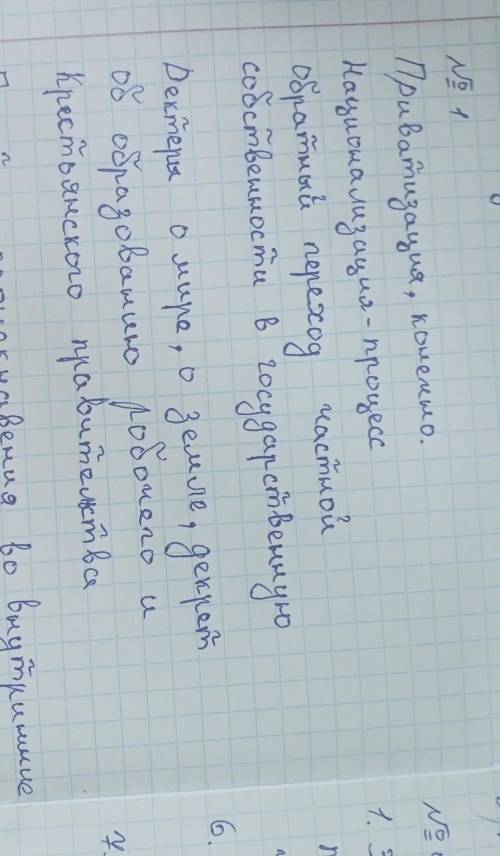 №1
Приватизация, конечно.
Национализация - процесс
обратный переход частной
собственности в государственную
Дектеры о мире, о земле, декрет
об образованию рабочего и
Крестьянского правительтва
во внутринние
№
1.
6.
7.